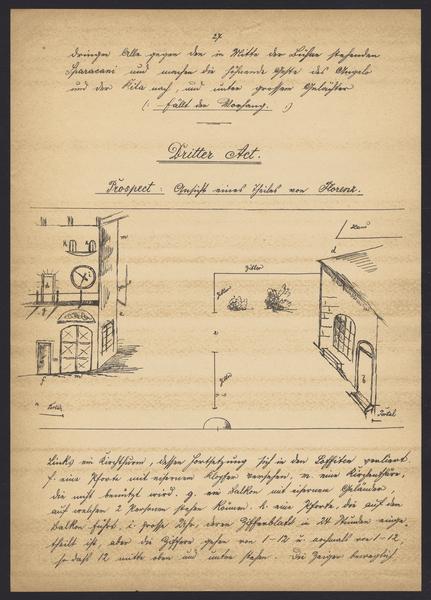 27.
dringen Alle gegen den in Mitte der Bühne stehenden
Sparacani und machen die höhnende Geste des Angelo
und der Rita nach, und unter grossem Gelächter
(: fällt der Vorhang. :)
Dritter Act.
Prospect: Ansicht eines Theiles von Florenz.
Haus
d
Gitter
Gitter
Gitter
e
b
f
m
g
h
i
Links ein Kirchthurm, dessen Fortsetzung sich in den Soffiten verliert.
f. eine Pforte mit eisernem Klopfer versehen, m. eine Kirchenthüre,
die nicht benützt wird. g. ein Balkon mit eisernem Geländer,
auf welchem 2 Personen stehen können. h. eine Pforte, die auf den
Balkon führt. i. grosse Uhr, deren Zifferblatt in 24 Stunden einge-
theilt ist, aber die Ziffern gehen von 1-12 u. nochmals von 1-12,
so dass 12 mitte oben und unten stehen. Die Zeiger beweglich